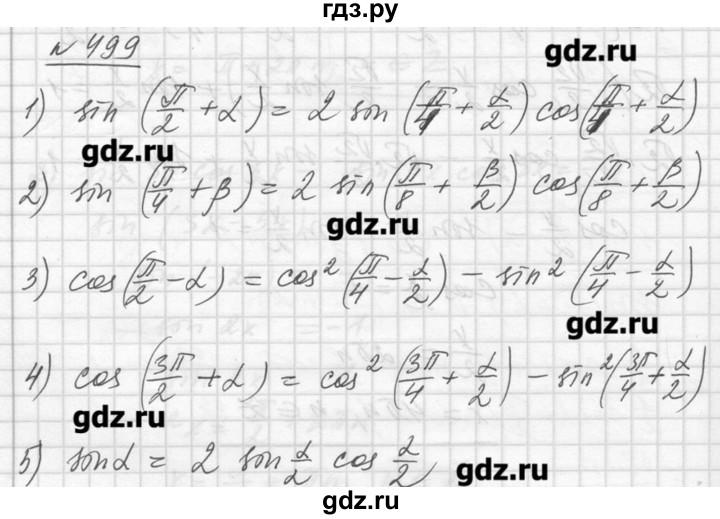 гдз.ру
№ 499
gdz.ru
1) sin (π/2 + α) = 2 sin (π/4 + α/2) cos(π/4 + α/2)
gdz.ru
2) sin (π/4 + β) = 2 sin(π/8 + β/2) cos(π/8 + β/2)
gdz.ru
3) cos(π/2 - α) = cos² (π/4 - α/2) - sin² (π/4 - α/2)
gdz.ru
4) cos (3π/2 + α) = cos² (3π/4 + α/2) - sin² (3π/4 + α/2)
gdz.ru
5) sin α = 2 sin α/2 cos α/2
gdz.ru
gdz.ru